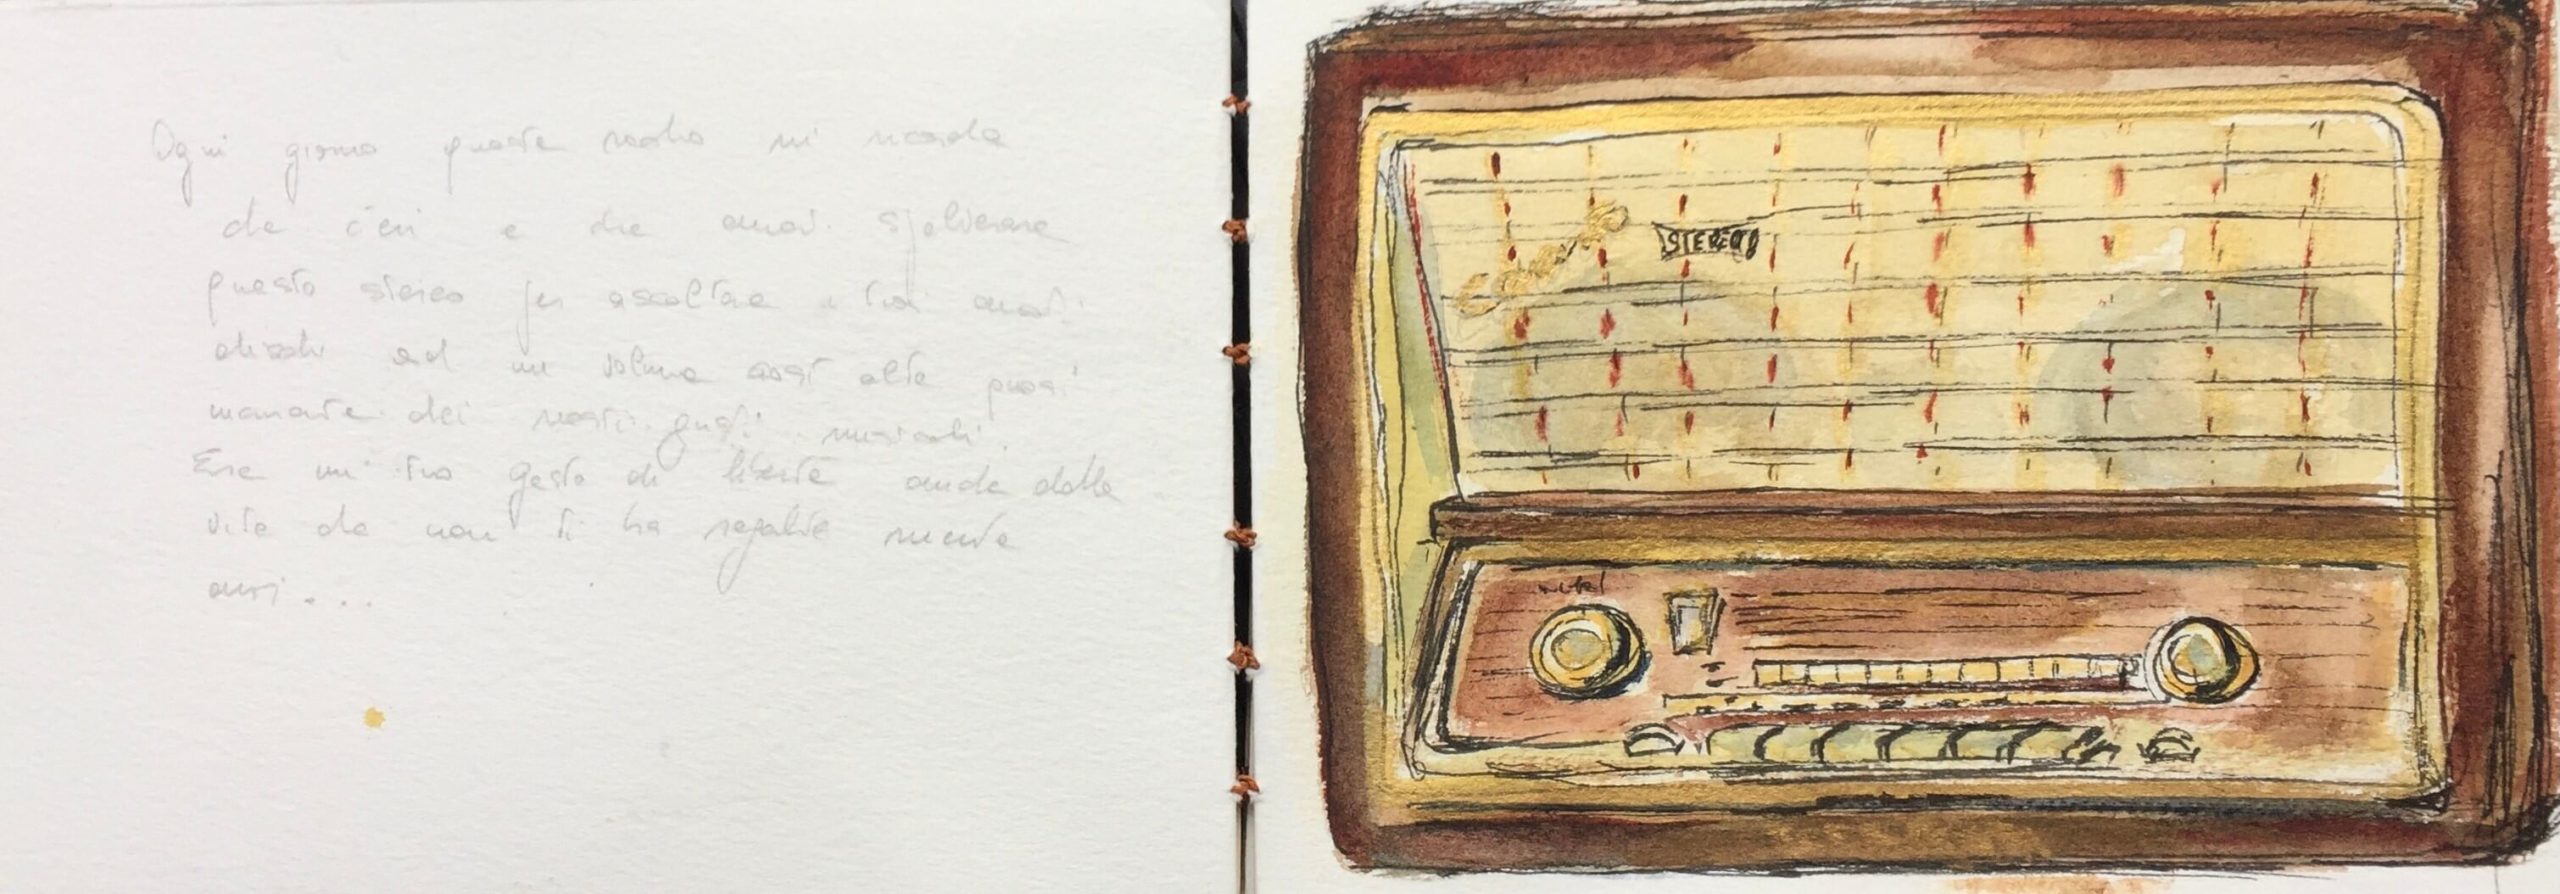 Ogni giorno questa radio mi ricorda
che c'eri e che amavi
questo stereo per ascoltare i tuoi amati
dischi ad un volume così alto quasi
dei nostri gusti musicali.
Era un tuo gesto di libertà anche dalla
vita che non ti ha regalato niente
anzi...
STEREO